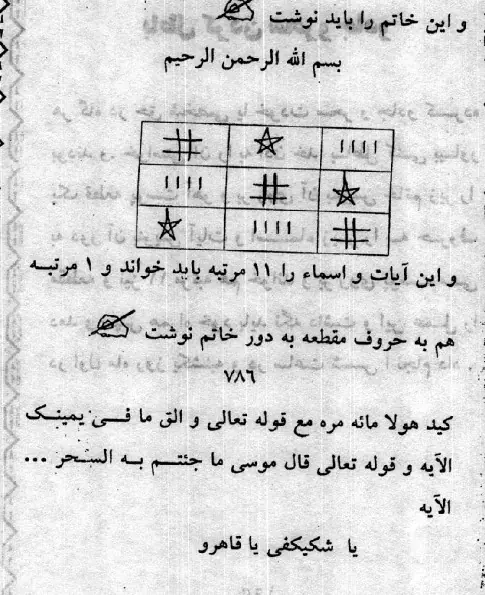 و این خاتم را باید نوشت
بسم الله الرحمن الرحیم
و این آیات و اسماء را ۱۱ مرتبه باید خواند و ۱ مرتبـه
هم به حروف مقطعه به دور خاتم نوشت
۷۸۶
کید هولا مائه مره مع قوله تعالی و الق ما فـــی یمینــک
الآیه و قوله تعالی قال موسی ما جئتــم بــه الســحر ...
الآیه
یا شکیکفی یا قاهرو